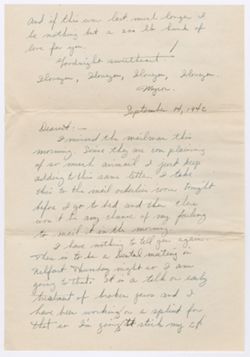 And if this war last much longer I
be nothing but a 200 lb hunk of
love for you.
Goodnight sweetheart!
Iloveyou, Iloveyou, Iloveyou, Iloveyou.
Myron.
September 14, 1942
Dearest:—
I missed the mailman this
morning. Since they are complaining
of so much airmail I just keep
adding to this same letter. I take
this to the mail orderlies room tonight
before I go to bed and then there
won't be any chance of my failing
to mail it in the morning.
I have nothing to tell you again.
There is to be a dental meeting in
Belfast Thursday night so I am
going to that. It is a talk on early
treatment of broken jaws and I
have been working on a splint for
that so I'm going to stick my